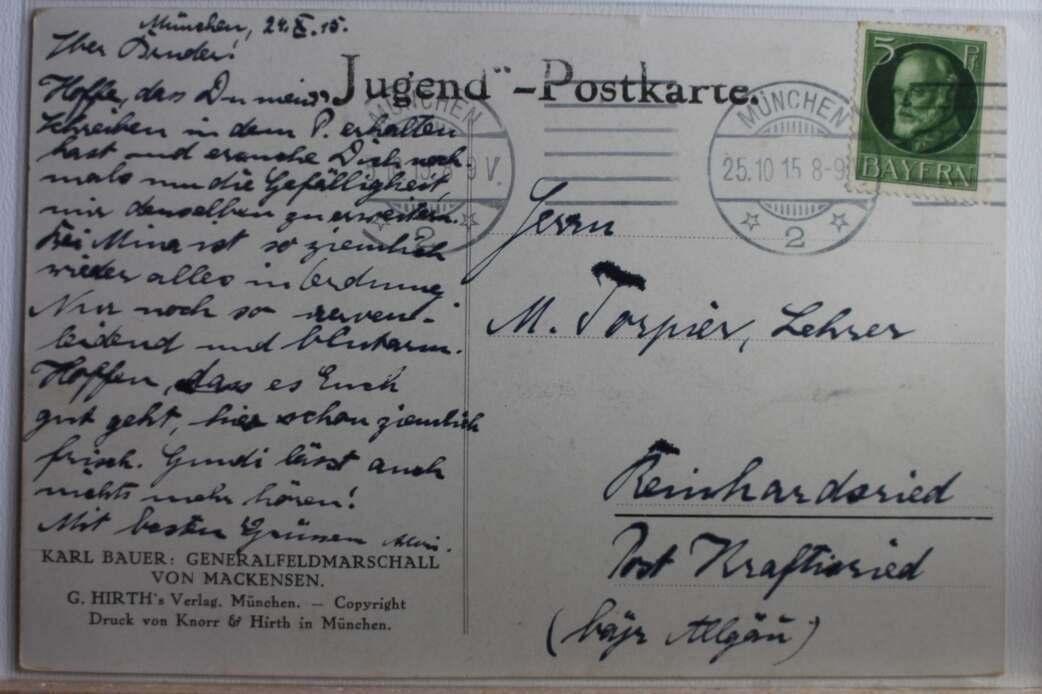 München, 24.X.15.
Lieber Bruder!
Hoffe, dass Du mein
Schreiben in dem P. erhalten
hast und ersuche Dich noch-
mals um die Gefälligkeit
mir denselben zu erweitern.
Bei Mina ist so ziemlich
wieder alles in Ordnung.
Nur noch so nerven-
leidend und blutarm.
Hoffen, dass es Euch
gut geht, hier schon ziemlich
frisch. Gundi lässt auch
nichts mehr hören!
Mit besten Grüssen Alois.
KARL BAUER: GENERALFELDMARSCHALL
VON MACKENSEN.
G. HIRTH's Verlag, München. — Copyright
Druck von Knorr & Hirth in München.
„Jugend“-Postkarte.
MÜNCHEN
9 V.
2
MÜNCHEN
25.10 15 8-9
2
5 Pf
BAYERN
Herrn
M. Torpier, Lehrer
Reinhardsried
Post Kraftisried
(bayr Allgäu)